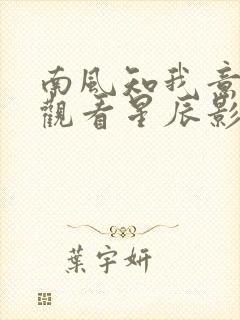 南風知我意
觀看星辰影
葉宇妍